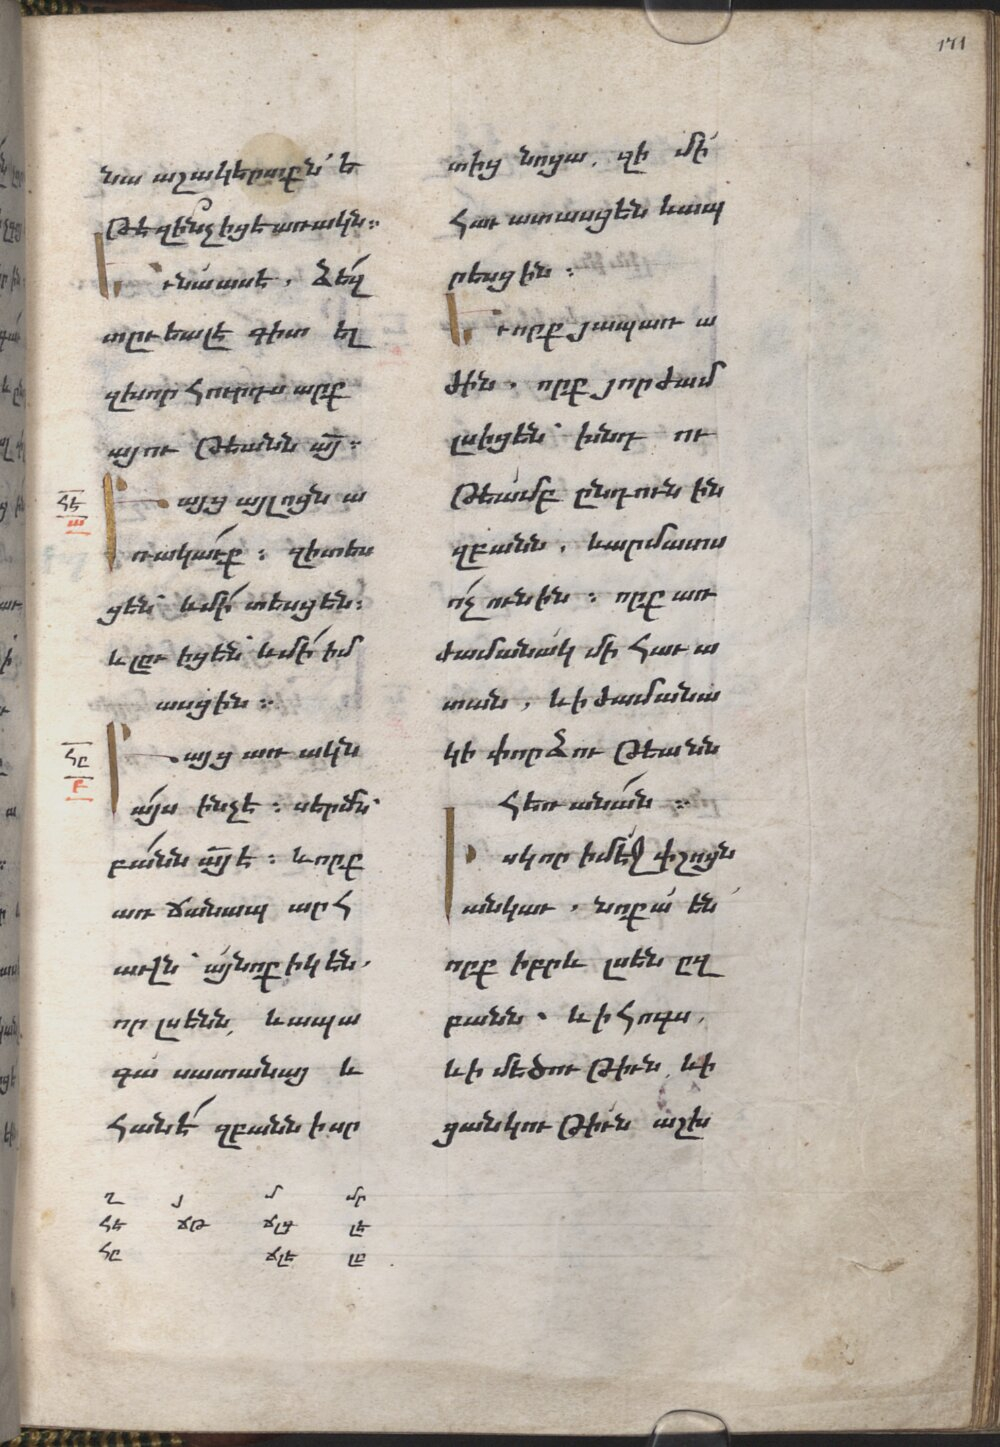 171
նա աշակերտքն՝ ե
թէ զի՞նչ իցէ առակն։
Եւ նա ասէ. Ձեզ
տըւեալ է գիտ ել
զխոր հուրդս արք
այու թեանն ա՟յ։
ՀԷ
ա
Բայց այլոցն ա
ռակաւք։ զի տես
ցեն՝ և մի՛ տեսցեն։
և լըւ իցեն՝ և մի՛ իմ
ասցին։
ՀԸ
բ
Բայց առ ակն
այս ինչ է։ սերմն՝
բանն ա՟յ է։ և որք
առ ճանապ արհ
աւն՝ այնոքիկ են.
որ լսենն, և ապա
գա սատանայ և
հանէ զբանն ի սր
տից նոցա, զի մի՛
հաւ ատասցեն և ապ
րեսցին։
Եւ որք յապառ ա
ժին. որք յորժամ
լսիցեն՝ խնդ ու
թեամբ ընդուն ին
զբանն, և արմատս
ո՛չ ունին։ որք առ
ժամանակ մի հաւ ա
տան, և ի ժամանա
կի փորձու թեանն
հեռ անան։
Իսկ որ ի մէջ փշոցն
անկաւ. նոքա են՝
որք իբրև լսեն ըզ
բանն. և ի հոգս,
և ի մեծու թիւն, և ի
ցանկու թիւն աշխ
Ղ Յ Մ ՄՐ
ՀԷ ՃԹ ՃԼԳ ԼԷ
ՀԸ ՃԼԷ ԼԸ